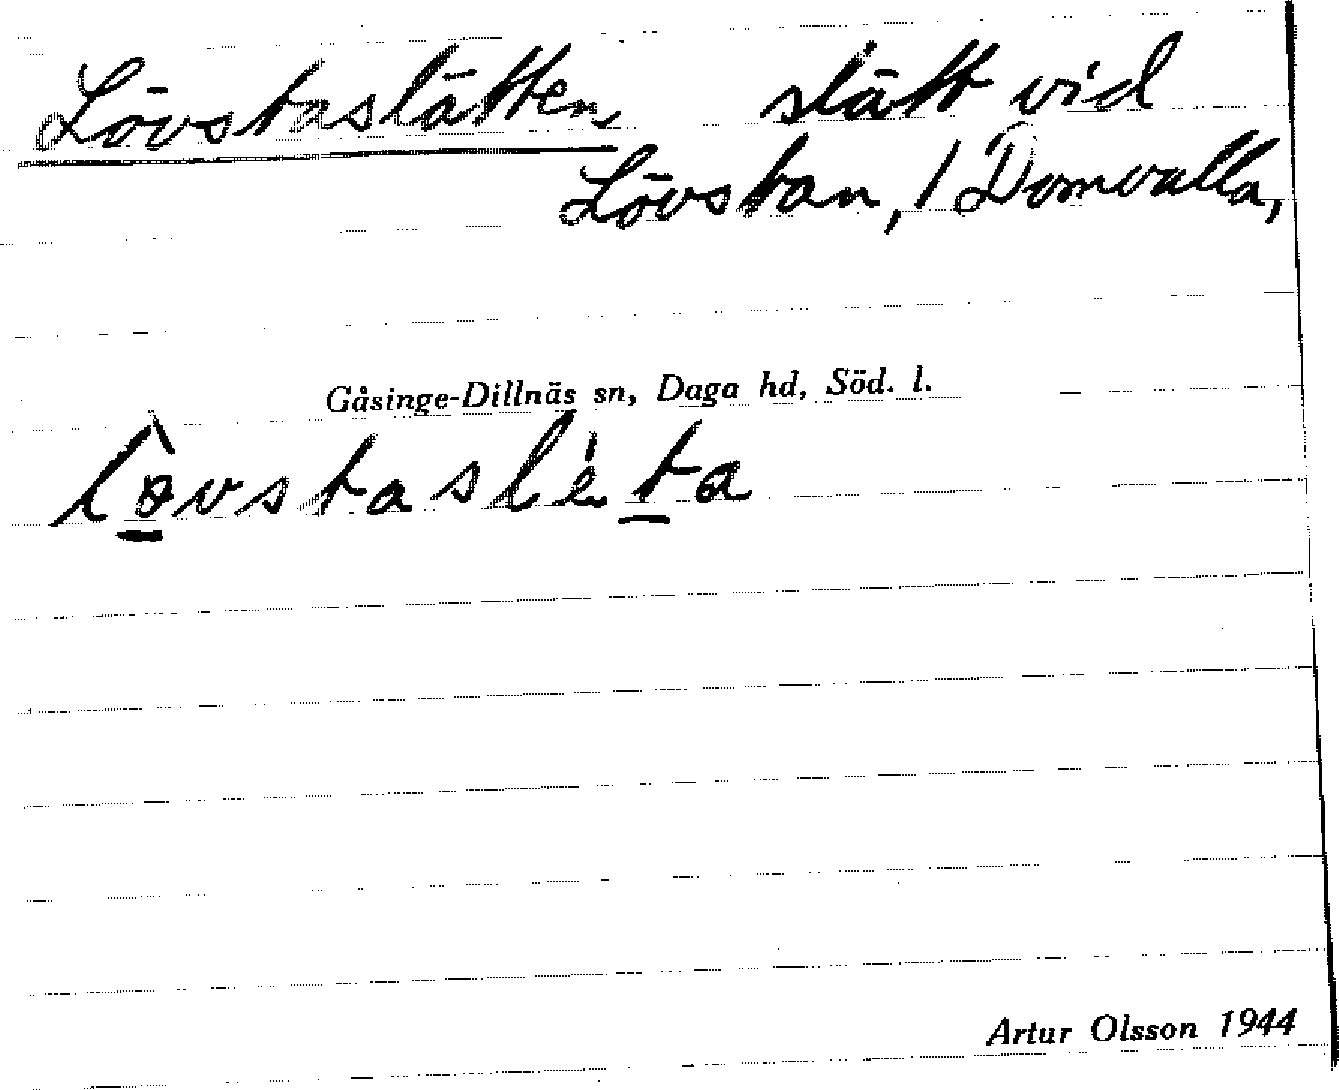 Lövstaslätten, slätt vid
Lövstan, / Domvalla,
Gåsinge-Dillnäs sn, Daga hd, Söd. l.
lø̲̀vstaslèt̲a
Artur Olsson 1944